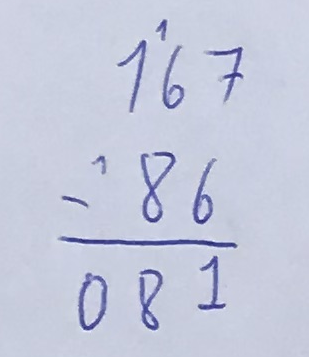 1
167
- 1 86
081